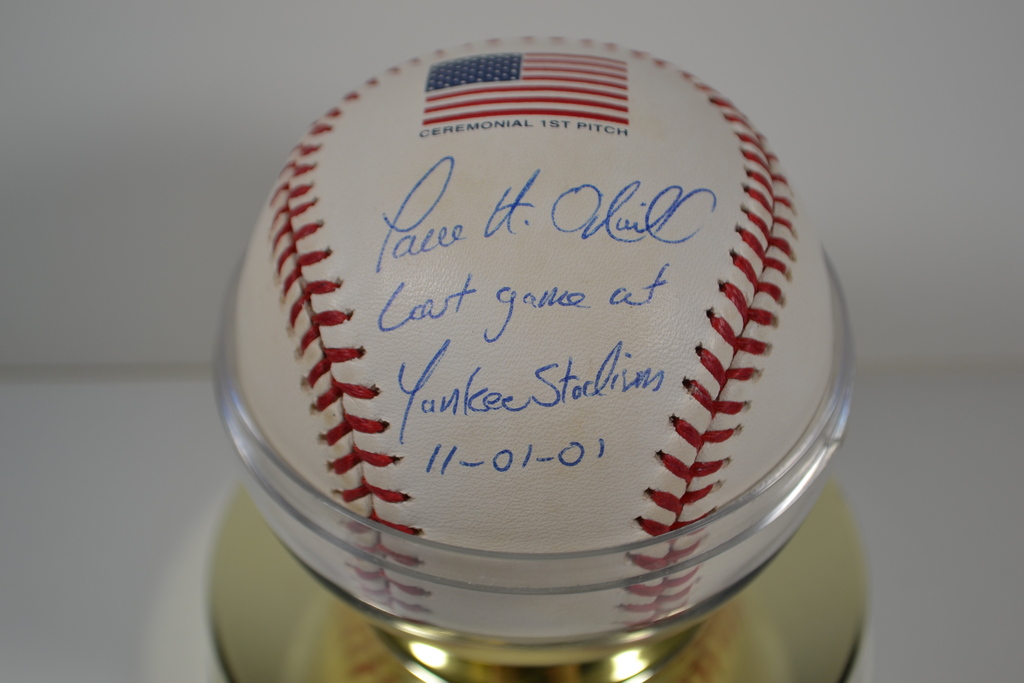 CEREMONIAL 1ST PITCH
Paul A. O'Neill
Last game at
Yankee Stadium
11-01-01